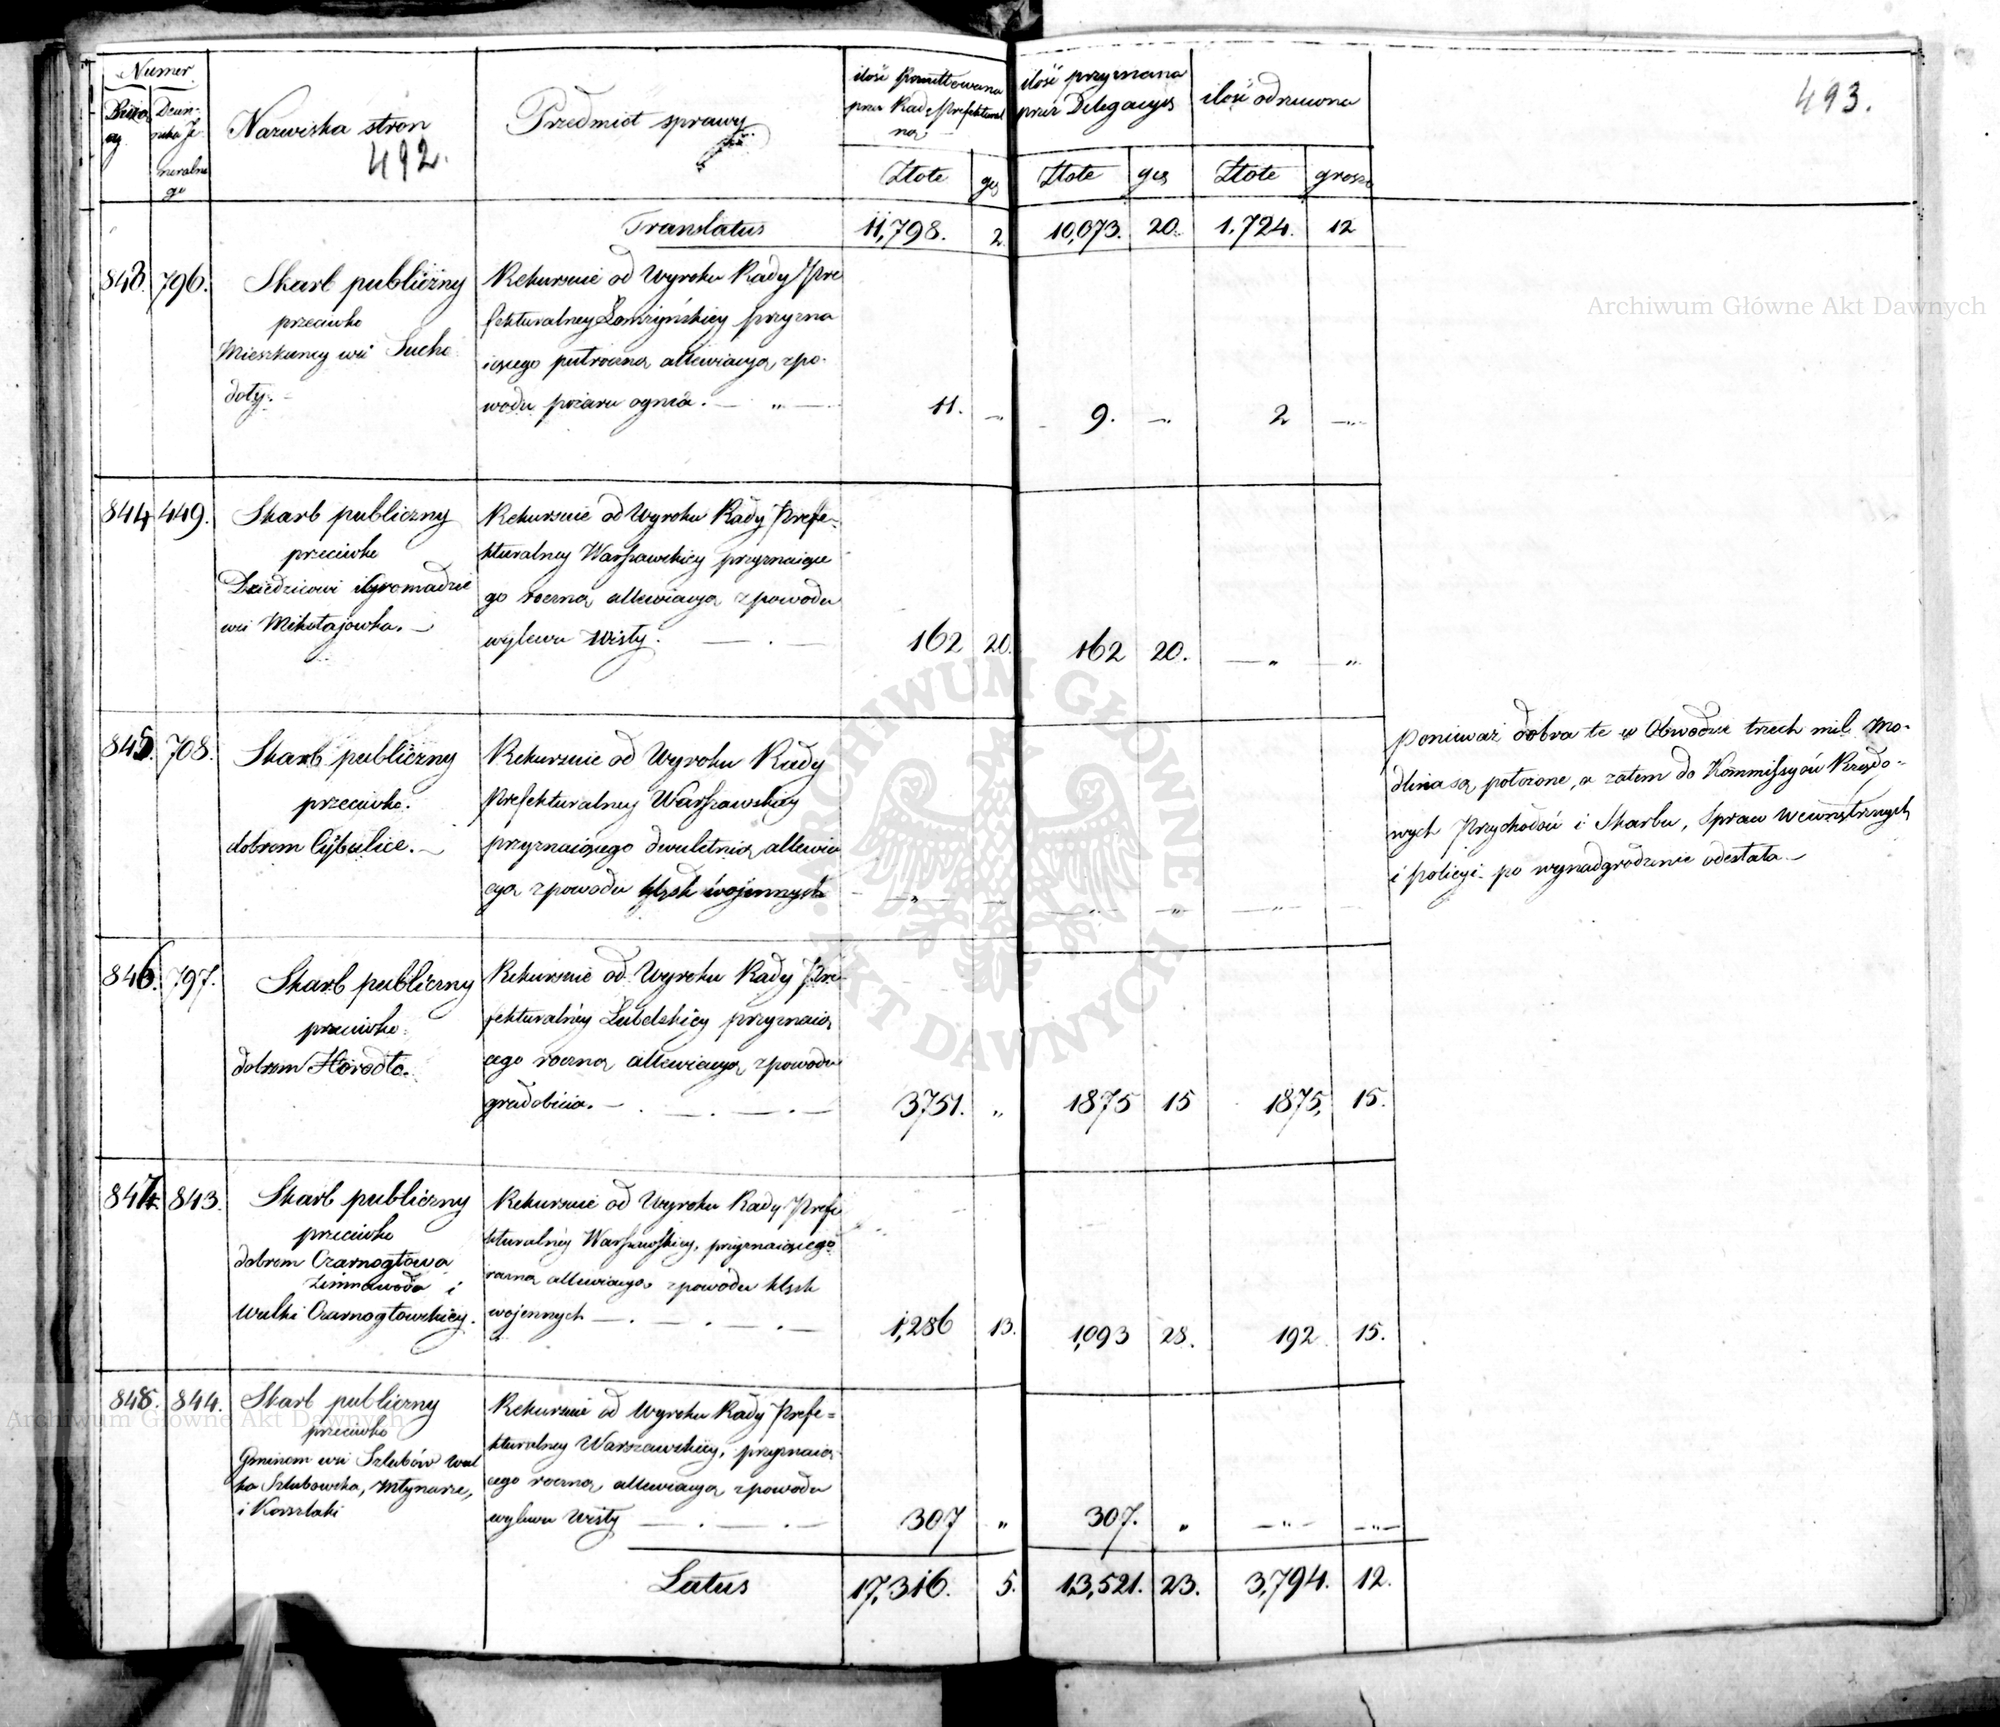 Numer
Nazwiska stron
Przedmiot sprawy
ilość przyznana
przez Delegacyą
ilość odrzucona
492.
493.
Złote
Złote
Złote
groszy
Translatus 11,798. 2 10,073. 20. 1,724. 12
843. 796.
Skarb publiczny
przeciwko
Mieszkańcy wsi Sucho
doły.
Rekursuie od Wyroku Rady Pre
fekturalney Łomżyńskiey przyzna
iącego półroczną allewiacyą z po-
wodu pożaru ognia.
11. 9. 2
844 449.
Skarb publiczny
przeciwko
Dziedzicowi i Gromadzie
wsi Mikołajówka.
Rekursuie od Wyroku Rady Prefe-
kturalney Warszawskiey przyznaiące
go roczną allewiacyą z powodu
wylewu Wisły.
162 20. 162 20.
845. 708.
Skarb publiczny
przeciwko.
dobrom Cybulice.
Rekursuie od Wyroku Rady
Prefekturalney Warszawskiey
przyznaiącego dwuletnią allewia
cyą z powodu klęsk woiennych
Ponieważ dobra te w Obwodzie trzech mil Mo-
dlina są położone, a zatem do Kommissyów Rządo-
wych Przychodów i Skarbu, Spraw Wewnętrznych
i Policyi po wynadgrodzenie odesłała
846. 797.
Skarb publiczny
przeciwko
dobrom Horodło.
Rekursuie od Wyroku Rady Pre
fekturalney Lubelskiey przyznaią
cego roczną allewiacyą z powodu
gradobicia.
3751. „ 1875 15 1875, 15.
847 843.
Skarb publiczny
przeciwko
dobrom Czarnogłowa
Zimnawoda i
Wulki Czarnogłowskiey.
Rekursuie od Wyroku Rady Prefe
kturalney Warszawskiey, przyznaiącego
roczną allewiacyą z powodu klęsk
wojennych
1,286 13. 1,093 28. 192 15.
848. 844.
Skarb publiczny
przeciwko
Gminom wsi Szlubów Wul
ka Szlubowska, Młynarze,
i Koszlaki
Rekursuie od Wyroku Rady Prefe=
kturalney Warszawskiey, przyznaią
cego roczną allewiacyą z powodu
wylewu Wisły
307 „ 307. „
Latus 17,316. 5. 13,521. 23. 3,794. 12.
Archiwum Główne Akt Dawnych
ARCHIWUM GŁÓWNE AKT DAWNYCH
Archiwum Główne Akt Dawnych